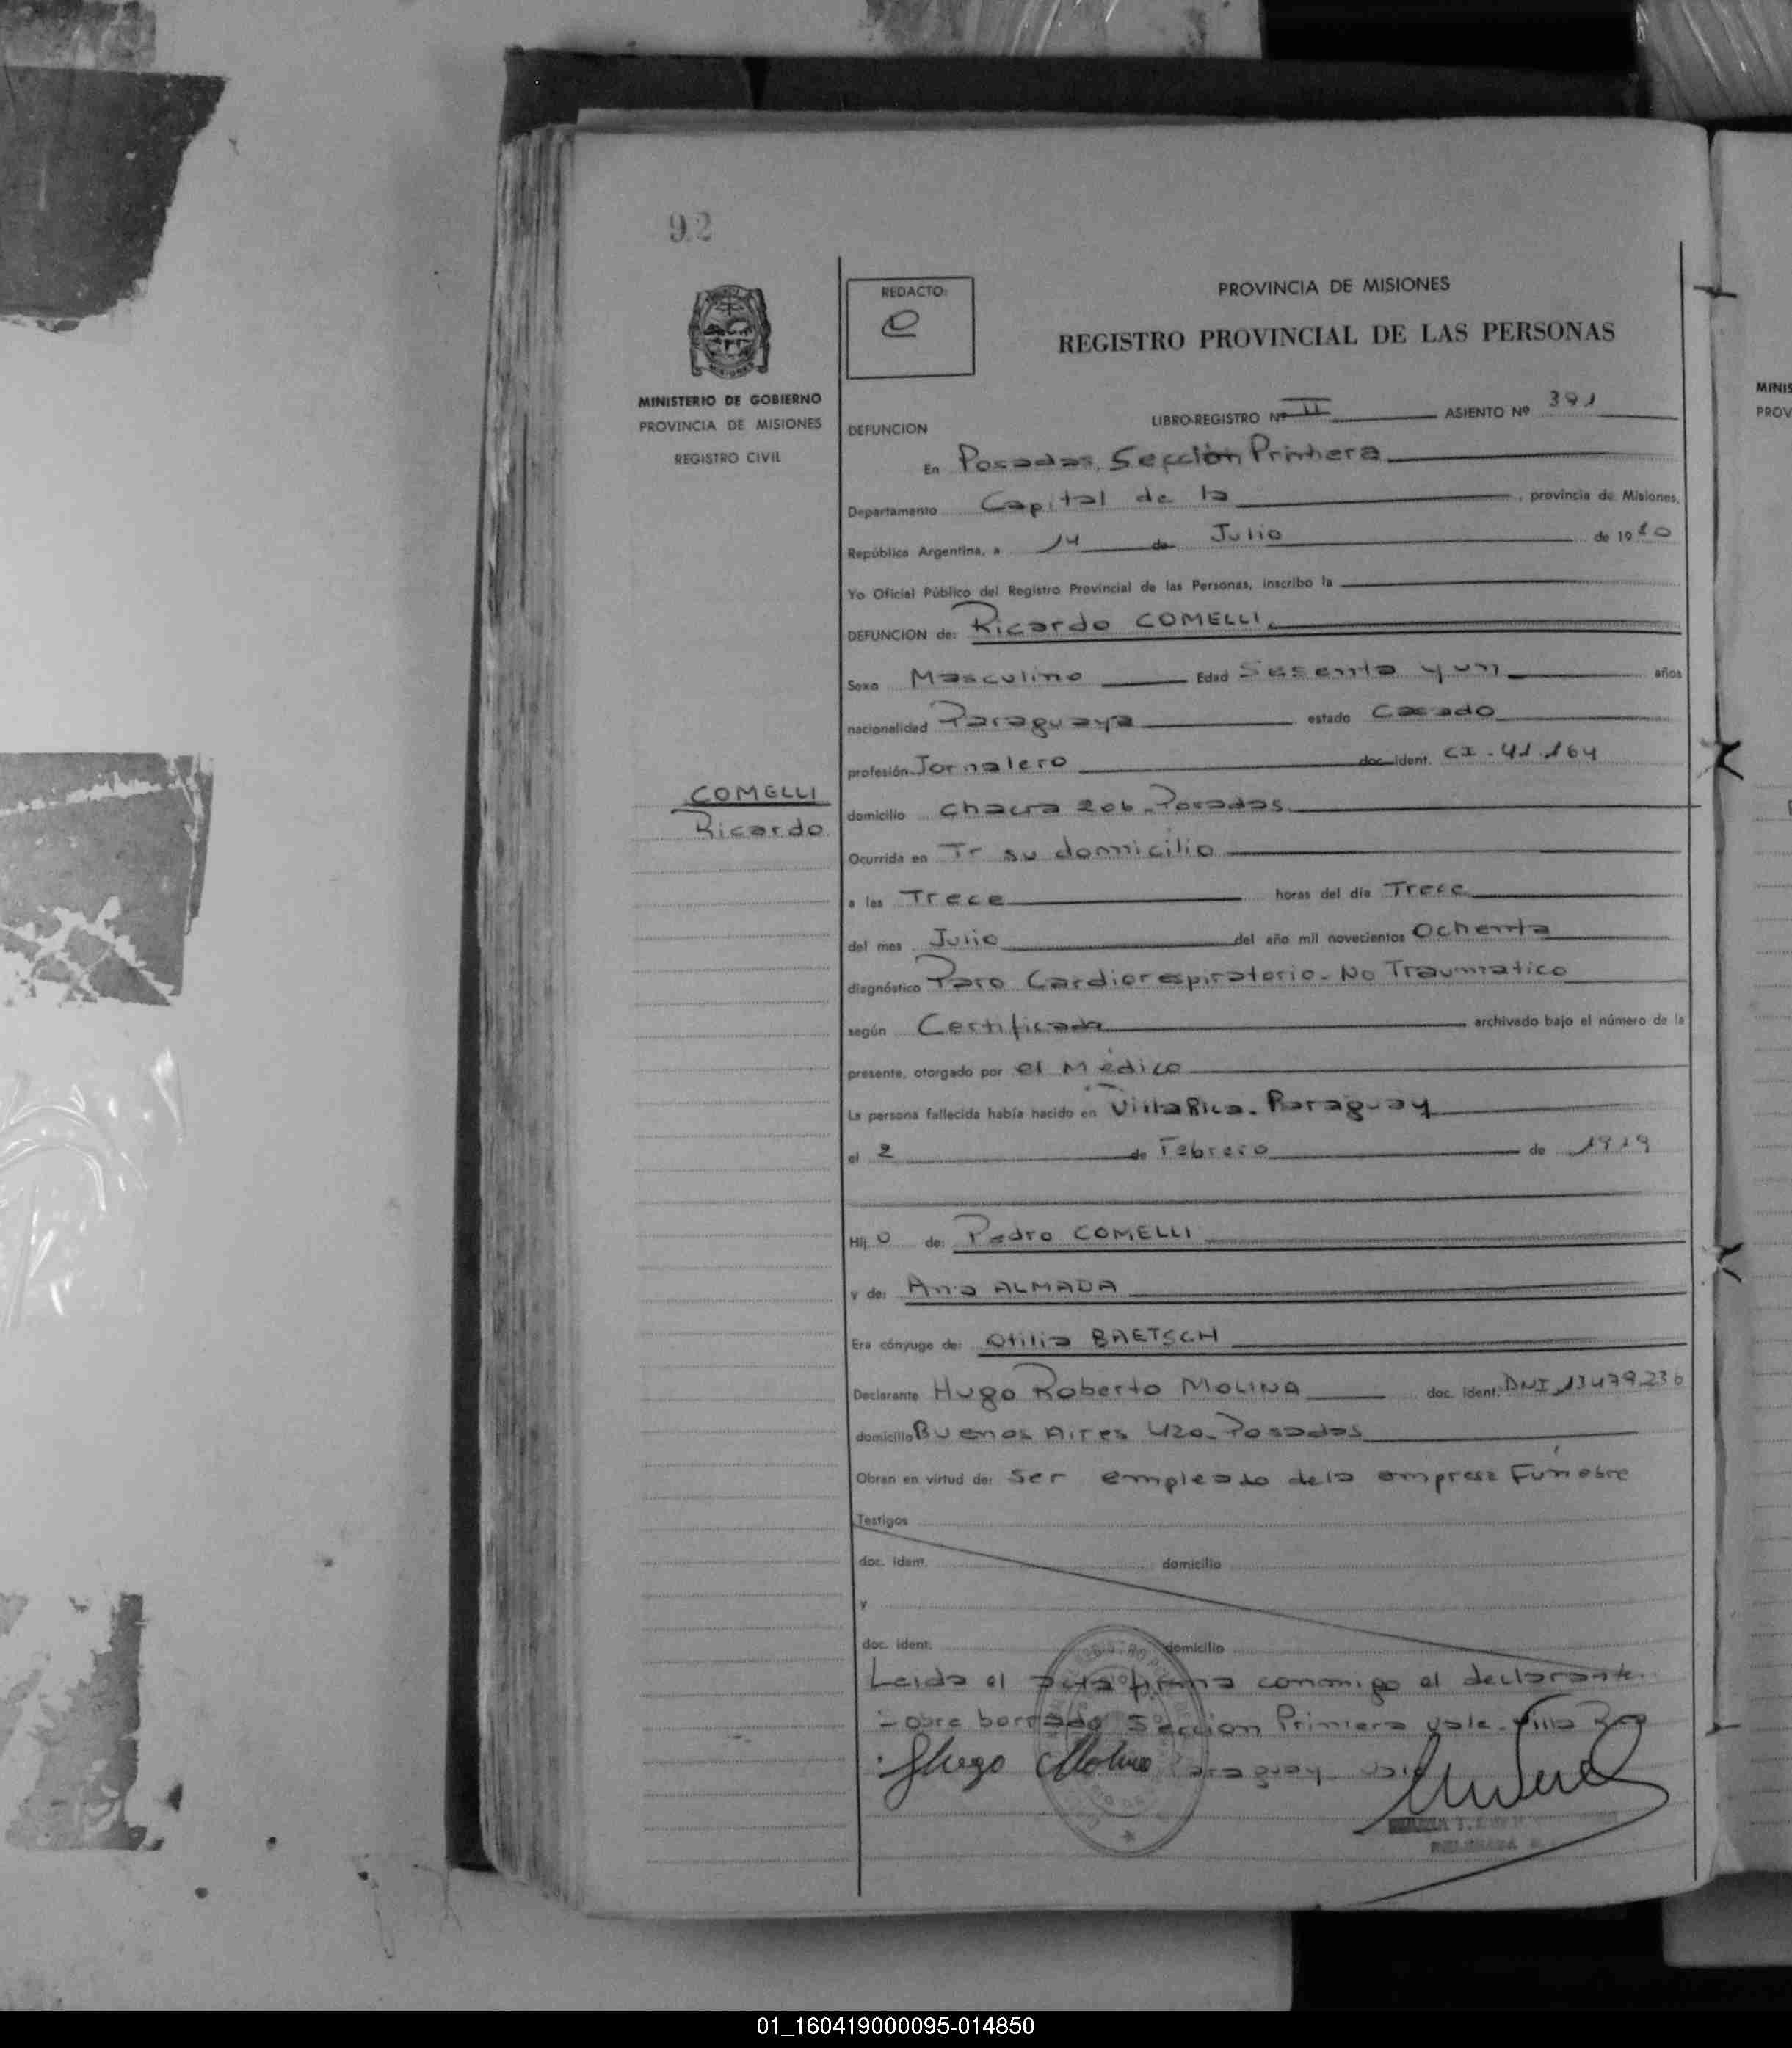 92
REDACTO:
e
PROVINCIA DE MISIONES
REGISTRO PROVINCIAL DE LAS PERSONAS
MINISTERIO DE GOBIERNO
PROVINCIA DE MISIONES
REGISTRO CIVIL
LIBRO-REGISTRO Nº II ASIENTO Nº 391
DEFUNCION
En Posadas, Sección Primera
Departamento Capital de la, provincia de Misiones,
República Argentina, a 14 de Julio de 1980
Yo Oficial Público del Registro Provincial de las Personas, inscribo la
DEFUNCION de: Ricardo COMELLI.
Sexo Masculino Edad Sesenta y un años
nacionalidad Paraguaya estado Casado
profesión Jornalero doc. ident. CI-41.164
COMELLI
Ricardo
domicilio Chacra 206-Posadas
Ocurrida en su domicilio
a las Trece horas del día Trece
del mes Julio del año mil novecientos Ochenta
diagnóstico Paro Cardiorespiratorio-No Traumatico
según Certificado archivado bajo el número de la
presente, otorgado por el Médico
La persona fallecida había nacido en Villa Rica-Paraguay
el 2 de Febrero de 1919
Hijo de: Pedro COMELLI
y de: Ana ALMADA
Era cónyuge de: Otilia BAETSCH
Declarante Hugo Roberto MOLINA doc. ident. DNI 13479236
domicilio Buenos Aires 420-Posadas
Obran en virtud de: ser empleado de la empresa Fúnebre
Testigos
doc. ident. domicilio
y
doc. ident. domicilio
Leida el acta firma conmigo el declarante.
Sobre borrado Sección Primera vale-Villa Rica
Hugo Molina Paraguay vale
MINIS
PROV
01_160419000095-014850